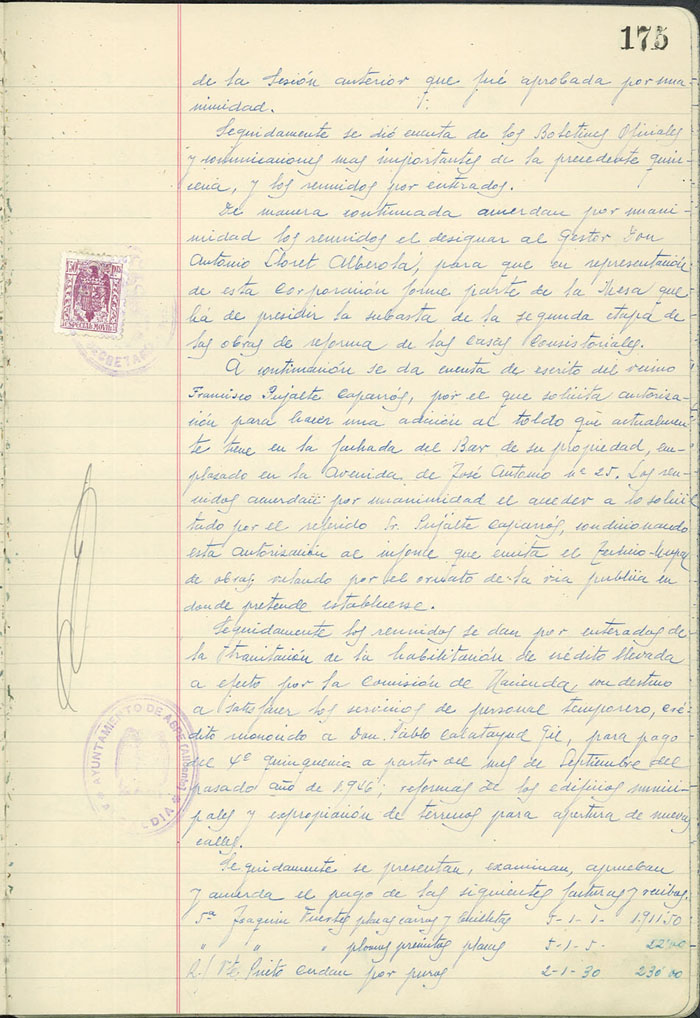 175
de la Sesión anterior que fué aprobada por una-
nimidad.
Seguidamente se dió cuenta de los Boletines Oficiales
y comunicaciones mas importantes de la precedente quin-
cena, y los reunidos por enterados.
De manera continuada acuerdan por unani-
midad los reunidos el designar al Gestor Don
Antonio Lloret Alberola, para que en representación
de esta Corporación forme parte de la Mesa que
ha de presidir la subasta de la segunda etapa de
las obras de reforma de las Casas Consistoriales.
A continuación se da cuenta de escrito del vecino
Francisco Pujalte Caparrós, por el que solicita autoriza-
ción para hacer una adición al toldo que actualmen-
te tiene en la fachada del Bar de su propiedad, em-
plazado en la Avenida de José Antonio nº 25. Los reu-
nidos acuerdan por unanimidad el acceder a lo solici-
tado por el referido Sr. Pujalte Caparrós, condicionando
esta autorización al informe que emita el Tecnico-Mupal
de obras, velando por el ornato de la via publica en
donde pretende establecerse.
Seguidamente los reunidos se dan por enterados de
la tramitación de la habilitación de crédito llevada
a efecto por la Comisión de Hacienda, con destino
a satisfacer los servicios de personal temporero, cré-
dito reconocido a Don Pablo Calatayud Gil, para pago
del 4º quinquenio a partir del mes de Septiembre del
pasado año de 1.946; reformas de los edificios munici-
pales y expropiación de terrenos para apertura de nuevas
calles.
Seguidamente se presentan, examinan, aprueban
y acuerda el pago de las siguientes facturas y recibos.
Fª Joaquin Fuertes placas carros y bicicletas 5-1-1- 1.911'50
" " " plomos precintos placas 5-1-5- 22'00
R./ Vte. Prieto Cerdan por puros 2-1-30 230'00
1'50 PTS
SECRETARIA
AYUNTAMIENTO DE ASPE (Alicante)
ALCALDIA